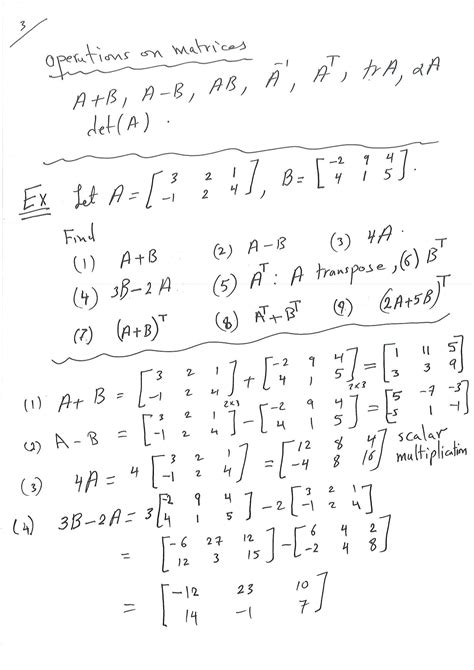 3
operations on matrices
A+B, A-B, AB, A⁻¹, Aᵀ, trA, αA
det(A) .
Ex Let A = [3 2 1; -1 2 4], B = [-2 9 4; 4 1 5].
Find
(1) A+B (2) A-B (3) 4A.
(4) 3B-2A (5) Aᵀ: A transpose, (6) Bᵀ
(7) (A+B)ᵀ (8) Aᵀ+Bᵀ (9) (2A+5B)ᵀ
(1) A+B = [3 2 1; -1 2 4]2x3 + [-2 9 4; 4 1 5]2x3 = [1 11 5; 3 3 9]
(2) A-B = [3 2 1; -1 2 4] - [-2 9 4; 4 1 5] = [5 -7 -3; -5 1 -1]
(3) 4A = 4 [3 2 1; -1 2 4] = [12 8 4; -4 8 16] scalar multiplication
(4) 3B-2A = 3[-2 9 4; 4 1 5] - 2[3 2 1; -1 2 4]
= [-6 27 12; 12 3 15] - [6 4 2; -2 4 8]
= [-12 23 10; 14 -1 7]